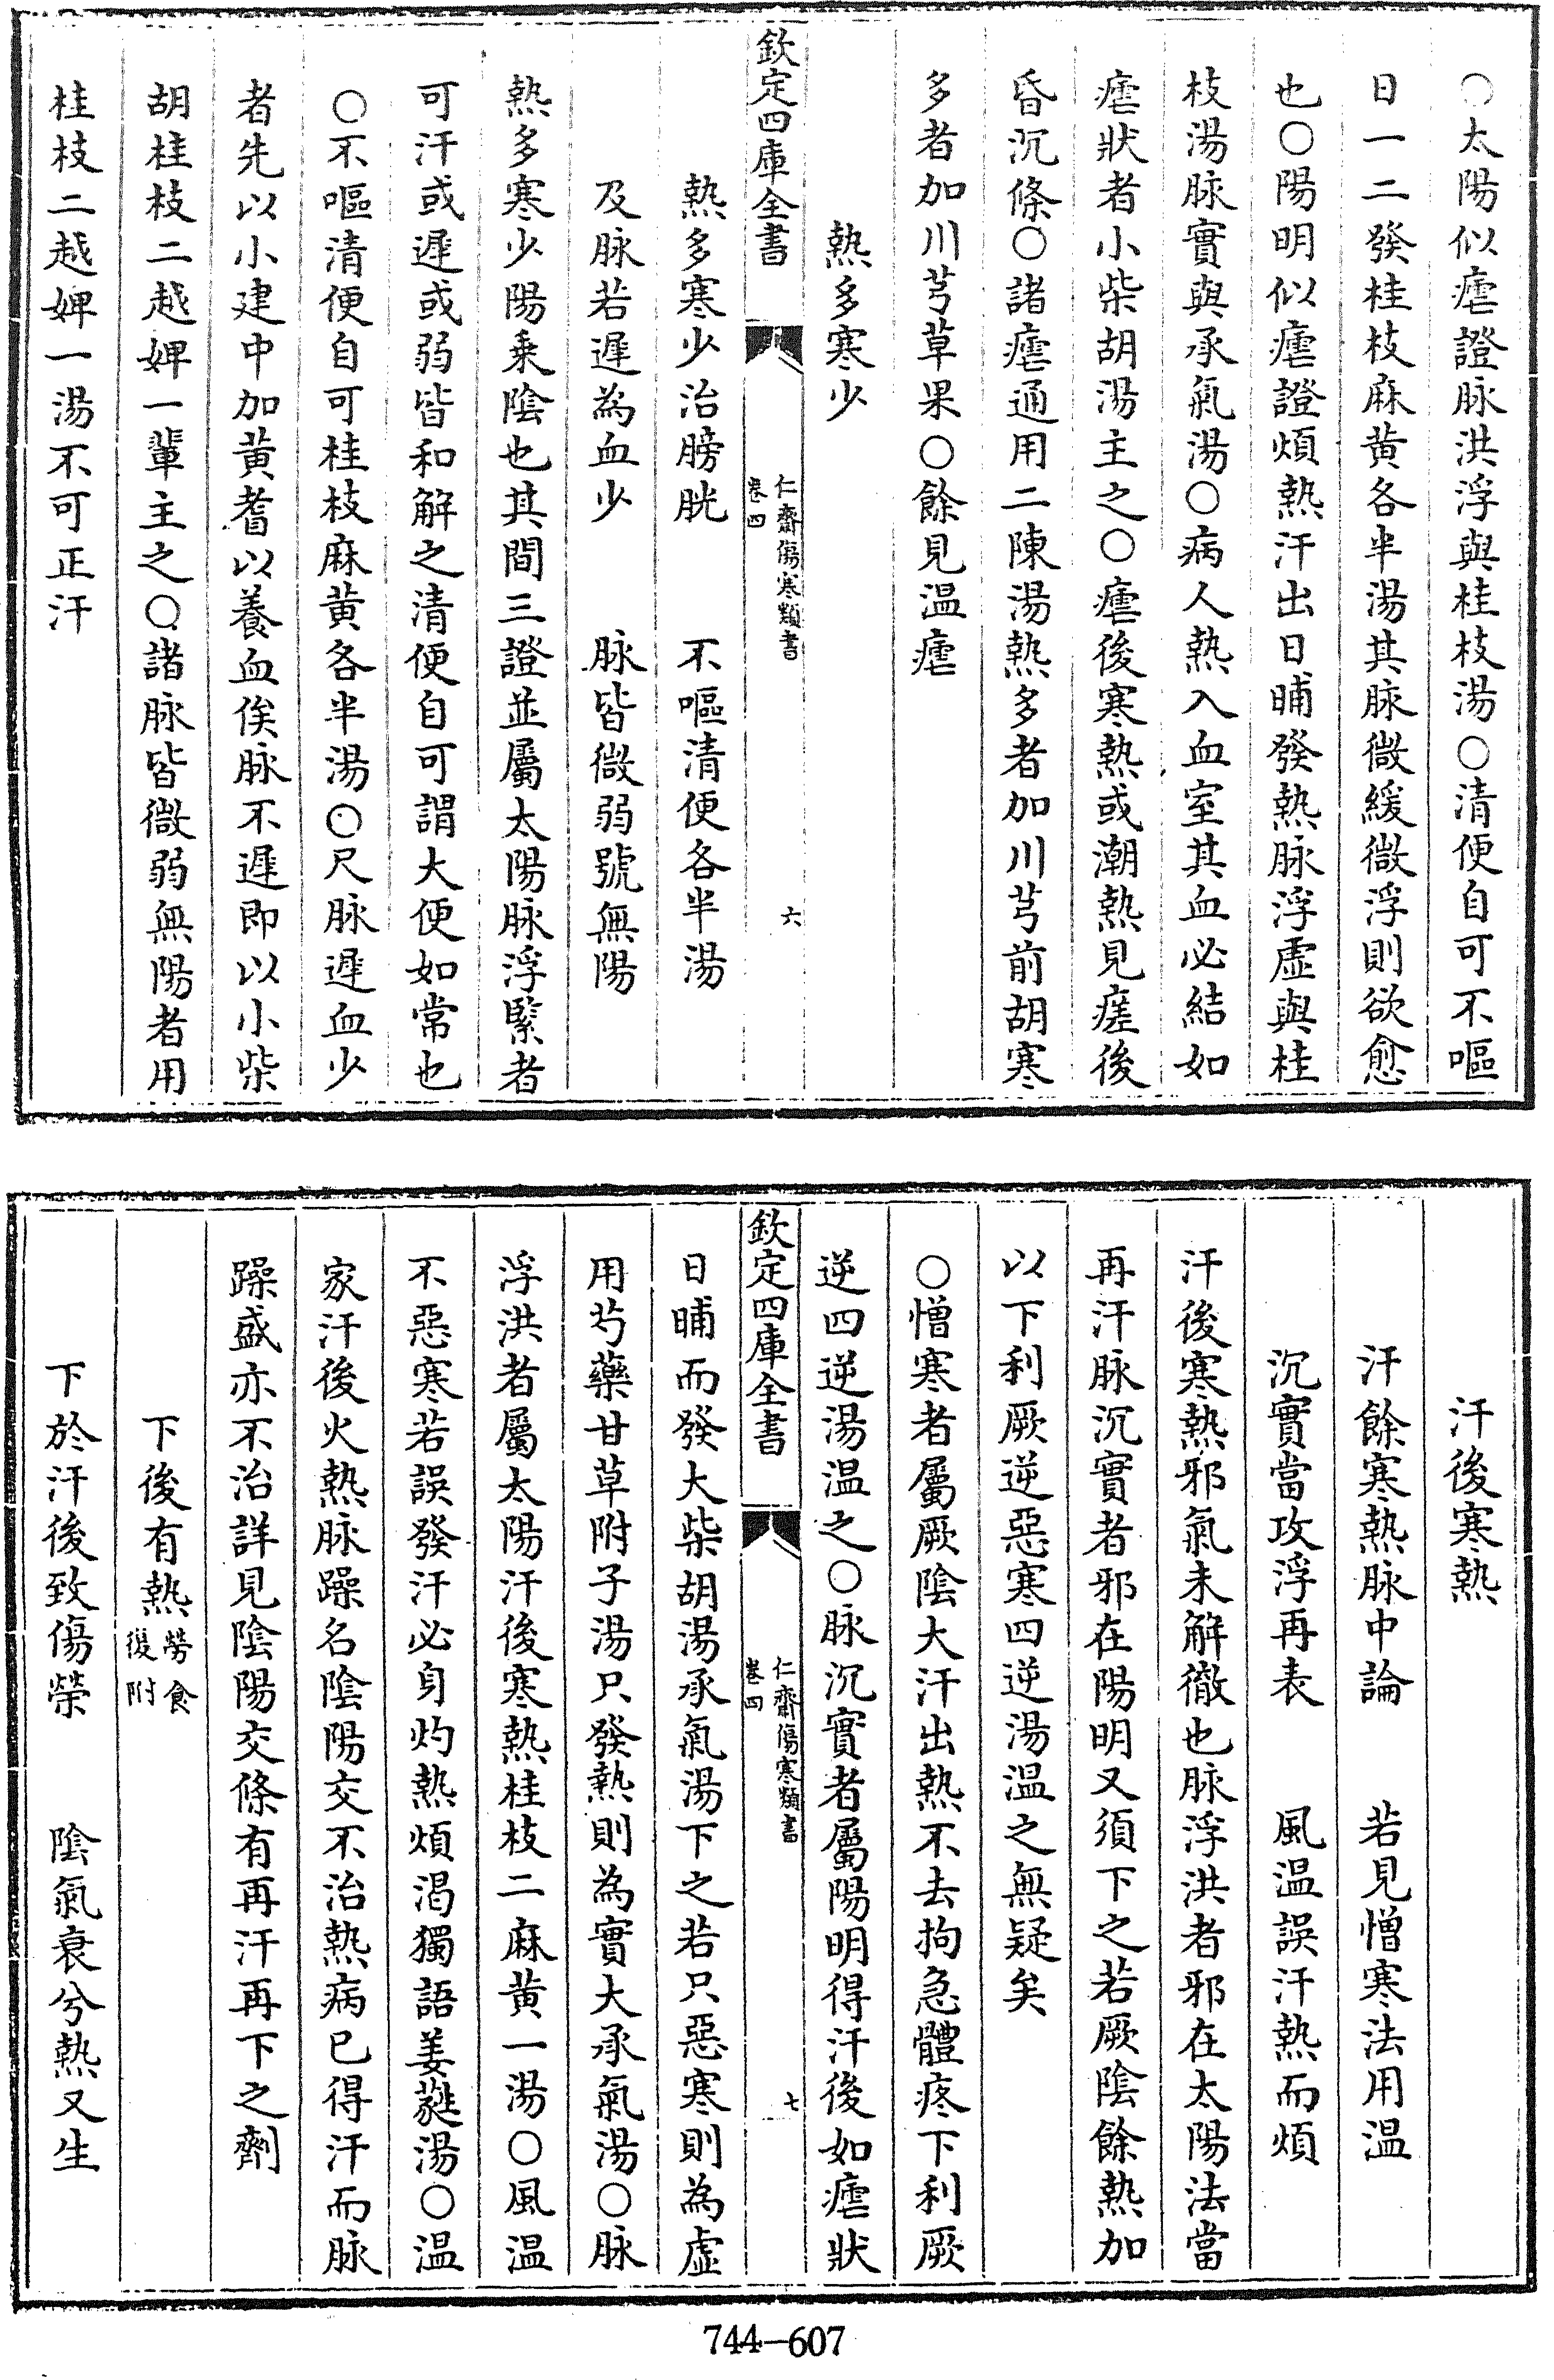 ○太陽似瘧證脉洪浮與桂枝湯○清便自可不嘔
日一二發桂枝麻黄各半湯其脉微緩微浮則欲愈
也○陽明似瘧證煩熱汗出日晡發熱脉浮虛與桂
枝湯脉實與承氣湯○病人熱入血室其血必結如
瘧狀者小柴胡湯主之○瘧後寒熱或潮熱見瘥後
昏沉條○諸瘧通用二陳湯熱多者加川芎前胡寒
多者加川芎草果○餘見温瘧
熱多寒少
欽定四庫全書
仁齋傷寒類書
卷四
六
熱多寒少治膀胱　不嘔清便各半湯
及脉若遲為血少　脉皆微弱號無陽
熱多寒少陽乗陰也其間三證並屬太陽脉浮緊者
可汗或遲或弱皆和解之清便自可謂大便如常也
○不嘔清便自可桂枝麻黄各半湯○尺脉遲血少
者先以小建中加黄耆以養血俟脉不遲即以小柴
胡桂枝二越婢一輩主之○諸脉皆微弱無陽者用
桂枝二越婢一湯不可正汗
汗後寒熱
汗餘寒熱脉中論　若見憎寒法用温
沉實當攻浮再表　風温誤汗熱而煩
汗後寒熱邪氣未解徹也脉浮洪者邪在太陽法當
再汗脉沉實者邪在陽明又須下之若厥陰餘熱加
以下利厥逆惡寒四逆湯温之無疑矣
○憎寒者屬厥陰大汗出熱不去拘急體疼下利厥
逆四逆湯温之○脉沉實者屬陽明得汗後如瘧狀
欽定四庫全書
仁齋傷寒類書
卷四
七
日晡而發大柴胡湯承氣湯下之若只惡寒則為虛
用芍藥甘草附子湯只發熱則為實大承氣湯○脉
浮洪者屬太陽汗後寒熱桂枝二麻黄一湯○風温
不惡寒若誤發汗必身灼熱煩渴獨語萎蕤湯○温
家汗後火熱脉躁名陰陽交不治熱病已得汗而脉
躁盛亦不治詳見陰陽交條有再汗再下之劑
下後有熱勞食復附
下於汗後致傷榮　陰氣衰兮熱又生
744—607